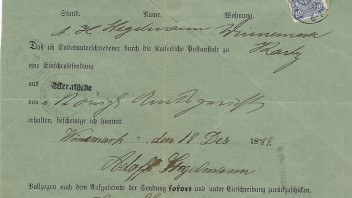 Stand. Name. Wohnung.
A. H. Hegelmann Winnemark
Daß ich Endesunterschriebener durch die Kaiserliche Postanstalt zu
eine Einschreibsendung
aus Eckernförde
von Königl. Amtsgericht
erhalten, bescheinige ich hiermit.
Winnemark, den 18 Dez. 188
Hegelmann
Vollzogen nach dem Aufgabeorte der Sendung sofort und unter Einschreibung zurückzuschicken.